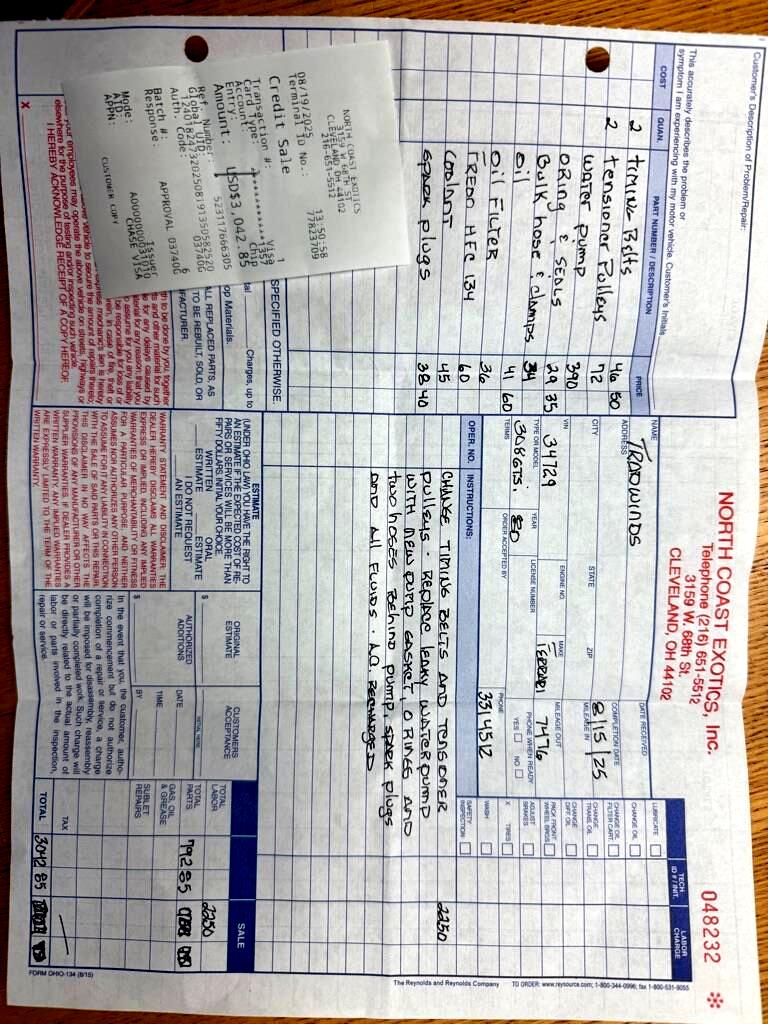 NORTH COAST EXOTICS, Inc.
Telephone (216) 651-5512
3159 W. 68th St.
CLEVELAND, OH 44102
048232 *
Customer's Description of Problem/Repair:
This accurately describes the problem or
symptom I am experiencing with my motor vehicle. Customer's Initials
COST QUAN. PART NUMBER / DESCRIPTION PRICE
2 TIMING Belts 46 50
2 tensioner Pulleys 72
water pump 390
ORING & SEALS 29 35
Bulk hose & clamps 34
oil 41 60
OIL FILTER 36
FREON HFC 134 60
COOLANT 45
SPARK plugs 38 40
NAME TRADWINDS
ADDRESS
CITY STATE ZIP
VIN 34729
ENGINE NO.
MAKE FERRARI
TYPE OR MODEL 308GTS.
YEAR 80
LICENSE NUMBER
TERMS
ORDER ACCEPTED BY
PHONE 3314512
DATE RECEIVED
COMPLETION DATE 8/15/25
MILEAGE IN
MILEAGE OUT 7476
PHONE WHEN READY
YES NO
TECH. ID # / INIT.
LABOR CHARGE
LUBRICATE
CHANGE OIL
CHANGE OIL FILTER CART.
CHANGE TRANS. OIL
CHANGE DIFF. OIL
PACK FRONT WHEEL BRGS.
ADJUST BRAKES
X TIRES
WASH
SAFETY INSPECTION
OPER. NO. INSTRUCTIONS:
CHANGE TIMING BELTS AND TENSIONER 2250
pulleys. Replace leaky water pump
with new pump gasket, O RINGS AND
two hoses behind pump, spark plugs
AND All FLUIDS. AC RECHARGED
SPECIFIED OTHERWISE.
Charges, up to
op Materials.
ALL REPLACED PARTS, AS
TO BE REBUILT, SOLD, OR
ESTIMATE
(UNDER OHIO LAW) YOU HAVE THE RIGHT TO
AN ESTIMATE IF THE EXPECTED COST OF RE-
PAIRS OR SERVICES WILL BE MORE THAN
FIFTY DOLLARS. INITIAL YOUR CHOICE.
WRITTEN ESTIMATE ORAL ESTIMATE
I DO NOT REQUEST
AN ESTIMATE
ORIGINAL ESTIMATE $
CUSTOMERS ACCEPTANCE
AUTHORIZED ADDITIONS $
DATE
TIME
BY
SALE
TOTAL LABOR 2250
TOTAL PARTS 792 85
GAS, OIL & GREASE
SUBLET REPAIRS
TAX
TOTAL 3042 85
WARRANTY STATEMENT AND DISCLAIMER: THE
DEALER HEREBY DISCLAIMS ALL WARRANTIES
EXPRESS OR IMPLIED INCLUDING ANY IMPLIED
WARRANTIES OF MERCHANTABILITY OR FITNESS
FOR A PARTICULAR PURPOSE, AND NEITHER
ASSUMES NOR AUTHORIZES ANY OTHER PERSON
TO ASSUME FOR IT ANY LIABILITY IN CONNECTION
WITH THE SALE OF SAID PARTS OR THIS REPAIR.
THIS DISCLAIMER IN NO WAY AFFECTS THE
PROVISIONS OF ANY MANUFACTURER OR OTHER
SUPPLIER WARRANTIES. IF DEALER PROVIDES A
WRITTEN WARRANTY, ANY IMPLIED WARRANTIES
ARE EXPRESSLY LIMITED TO THE TERM OF THE
WRITTEN WARRANTY.
In the event that you, the customer, autho-
rize commencement but do not authorize
completion of a repair or service, a charge
will be imposed for disassembly, reassembly
or partially completed work. Such charge will
be directly related to the actual amount of
labor or parts involved in the inspection,
repair or service.
your employees may operate the above vehicle on streets, highway or
elsewhere for the purpose of testing and/or inspecting such vehicle.
I HEREBY ACKNOWLEDGE RECEIPT OF A COPY HEREOF.
X
FORM OHIO-134 (8/15)
The Reynolds and Reynolds Company TO ORDER: www.reysource.com; 1-800-344-0996; fax 1-800-531-9055
NORTH COAST EXOTICS
3159 W 68TH ST
CLEVELAND, OH 44102
216-651-5512
08/19/2025 13:59:58
Terminal ID No.: 17829709
Credit Sale
Transaction #: 1
Card Type: Visa
Account: ************1357
Entry: Chip
Amount: USD$3,042.85
Ref. Number: 523117666305
Global UID:
Auth. Code: 03740G
Batch #: 6
Response: APPROVAL 03740G
Mode: Issuer
AID: A0000000031010
APPN: CHASE VISA
CUSTOMER COPY